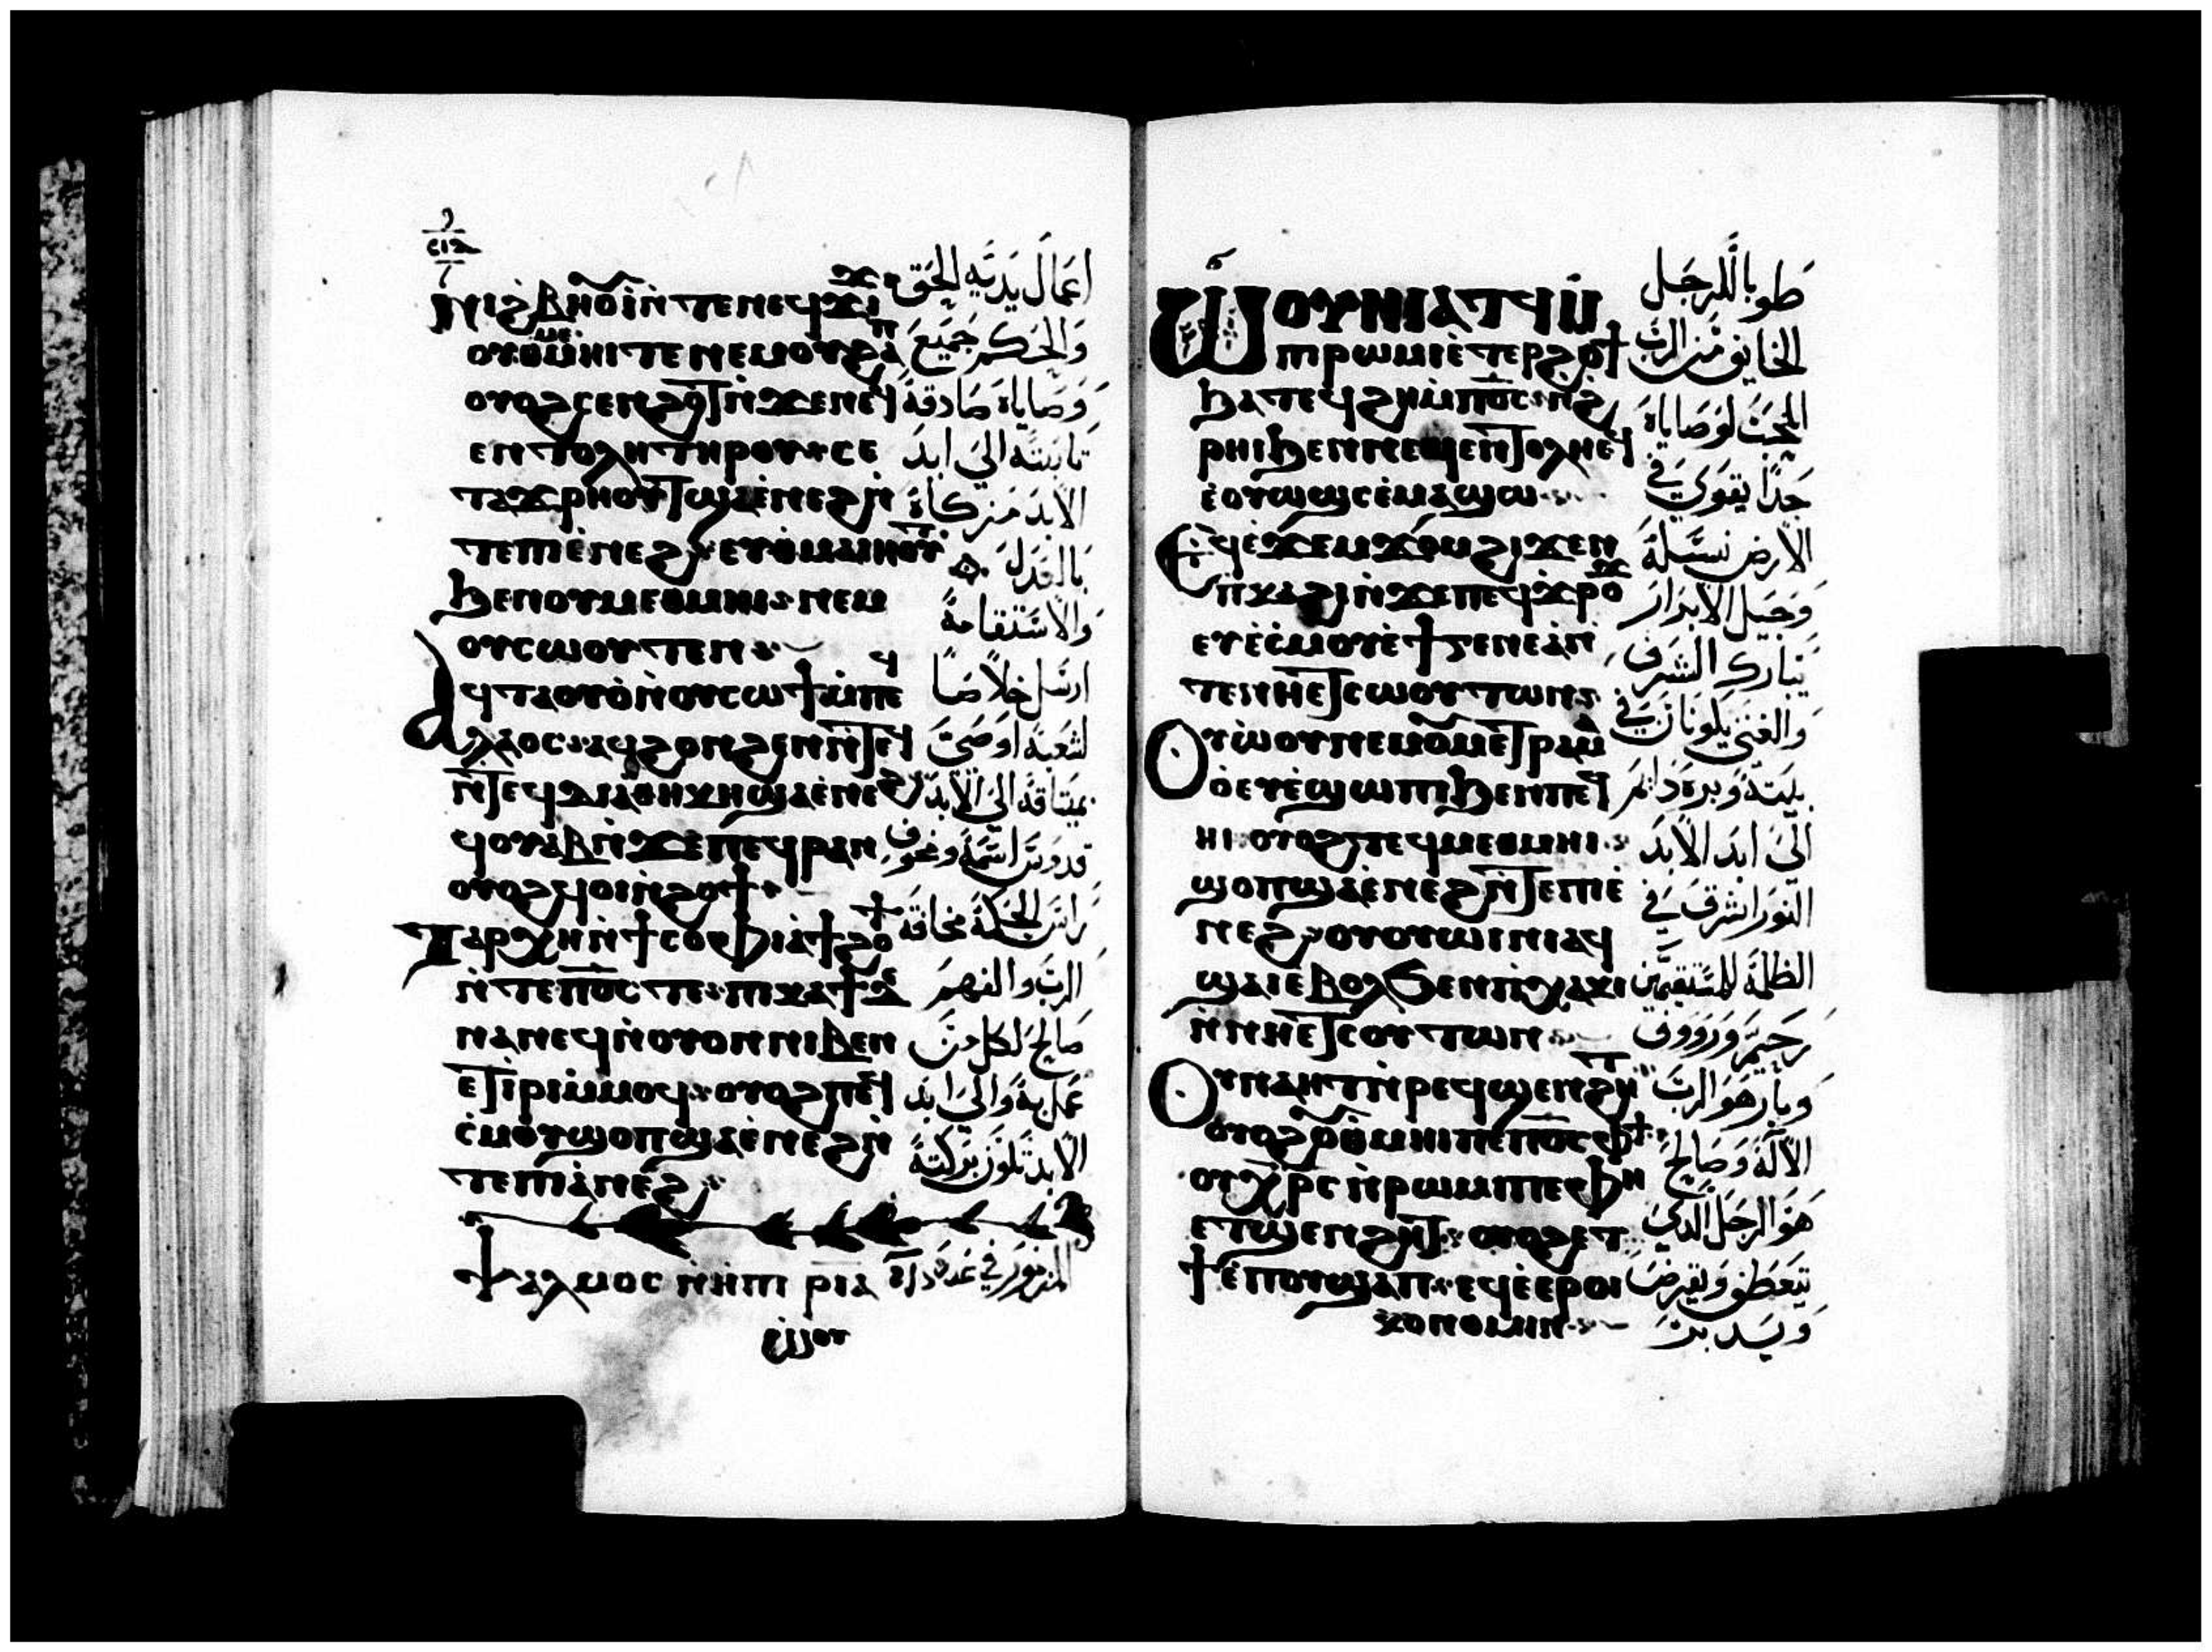 ⲛⲓϩⲃⲏⲟⲩⲓ ⲛⲧⲉ ⲛⲉϥϫⲓϫ
ⲟⲩⲙⲉⲑⲙⲏⲓ ⲧⲉ ⲛⲉⲙ ⲟⲩϩⲁⲡ
ⲟⲩⲟϩ ⲥⲉⲛϩⲟⲧ ⲛϫⲉ ⲛⲉϥ
ⲉⲛⲧⲟⲗⲏ ⲧⲏⲣⲟⲩ ⲥⲉ
ⲧⲁϫⲣⲏⲟⲩⲧ ϣⲁ ⲉⲛⲉϩ ⲛ
ⲧⲉ ⲡⲓⲉⲛⲉϩ ⲉⲩⲑⲁⲙⲓⲏⲟⲩⲧ
ϧⲉⲛ ⲟⲩⲙⲉⲑⲙⲏⲓ ⲛⲉⲙ
ⲟⲩⲥⲱⲟⲩⲧⲉⲛ
ⲁϥⲧⲁⲟⲩⲟ ⲛⲟⲩⲥⲱϯ ⲙⲡⲉϥ
ⲗⲁⲟⲥ ⲁϥϩⲟⲛϩⲉⲛ
ⲛⲧⲉϥⲇⲓⲁⲑⲏⲕⲏ ϣⲁ ⲉⲛⲉϩ
ϥⲟⲩⲁⲃ ⲛϫⲉ ⲡⲉϥⲣⲁⲛ
ⲟⲩⲟϩ ϥⲟⲓ ⲛϩⲟϯ
ⲧⲁⲣⲭⲏ ⲛϯⲥⲟⲫⲓⲁ ϯϩⲟϯ
ⲛⲧⲉ ⲡⲟⲥ ⲧⲉ ⲡⲓⲕⲁϯ ⲇⲉ
ⲛⲁⲛⲉϥ ⲛⲟⲩⲟⲛ ⲛⲓⲃⲉⲛ
ⲉⲧⲓⲣⲓ ⲙⲙⲟϥ ⲟⲩⲟϩ ⲡⲉϥ
ⲥⲙⲟⲩ ϣⲟⲡ ϣⲁ ⲉⲛⲉϩ ⲛ
ⲧⲉ ⲡⲓⲁⲛⲉϩ
ⲯⲁⲗⲙⲟⲥ ⲛⲏⲡⲓ ⲣⲓⲁ
اعمال يديه الحق
والحكم جميع
وصاياه صادقة
ثابتة الى ابد
الابد مزكاة
بالعدل
والاستقامة
ارسل خلاصا
لشعبه اوصى
بميثاقه الى الابد
قدوس اسمه ومخوف
راس الحكمة مخافة
الرب والفهم
صالح لكل من
عمل به والى ابد
الابد تكون بركته
المزمور في عدده
ⲱⲟⲩⲛⲓⲁⲧϥ ⲙ
ⲡⲓⲣⲱⲙⲓ ⲉⲧⲉⲣϩⲟϯ
ϧⲁⲧⲉϥϩⲏ ⲙⲡⲟⲥ ⲛϩ
ⲣⲏⲓ ϧⲉⲛ ⲛⲉϥⲉⲛⲧⲟⲗⲏ ⲉϥ
ⲉⲟⲩⲱϣ ⲥⲉⲙⲁϣⲱ
ⲉϥⲉϫⲉⲙϫⲟⲙ ϩⲓϫⲉⲛ
ⲡⲕⲁϩⲓ ⲛϫⲉ ⲡⲉϥϫⲣⲟϫ
ⲉⲩⲉⲥⲙⲟⲩ ⲉϯⲅⲉⲛⲉⲁ ⲛ
ⲧⲉ ⲛⲏⲉⲧⲥⲱⲟⲩⲧⲱⲛ
ⲟⲩⲱⲟⲩ ⲛⲉⲙ ⲟⲩⲙⲉⲧⲣⲁⲙ
ⲁⲟ ⲉⲩⲉϣⲱⲡⲓ ϧⲉⲛ ⲡⲉϥ
ⲏⲓ ⲟⲩⲟϩ ⲧⲉϥⲙⲉⲑⲙⲏⲓ
ϣⲟⲡ ϣⲁ ⲉⲛⲉϩ ⲛⲧⲉ ⲡⲓⲉ
ⲛⲉϩ ⲟⲩⲟⲩⲱⲓⲛⲓ ⲁϥ
ϣⲁⲓ ⲉⲃⲟⲗ ϧⲉⲛ ⲡⲭⲁⲕⲓ
ⲛⲛⲏⲉⲧⲥⲟⲩⲧⲱⲛ
ⲟⲩⲛⲁⲏⲧ ⲛⲣⲉϥϣⲉⲛϩⲏⲧ
ⲟⲩⲟϩ ⲟⲩⲑⲙⲏⲓ ⲡⲉ ⲡⲟⲥ ⲫϯ
ⲟⲩⲭⲣⲥ ⲛⲣⲱⲙⲓ ⲡⲉ ⲫⲏ
ⲉⲧϣⲉⲛϩⲏⲧ ⲟⲩⲟϩ ⲉⲧ
ϯ ⲉⲡⲟⲩϣⲁⲡ ⲉϥⲉⲉⲣⲟⲓ
ⲕⲟⲛⲟⲙⲓⲛ
طوبا للرجل
الخايف من الرب
المحب لوصاياه
جدا يقوى في
الارض نسله
وجيل الابرار
يتبارك الشرف
والغنى يكونان في
بيته وبره دايم
الى ابد الابد
النور اشرق في
الظلمة للمستقيمين
رحيم ورووف
وبار هو الرب
الاله وصالح
هو الرجل الذي
يتعطف ويقرض
ويدبر